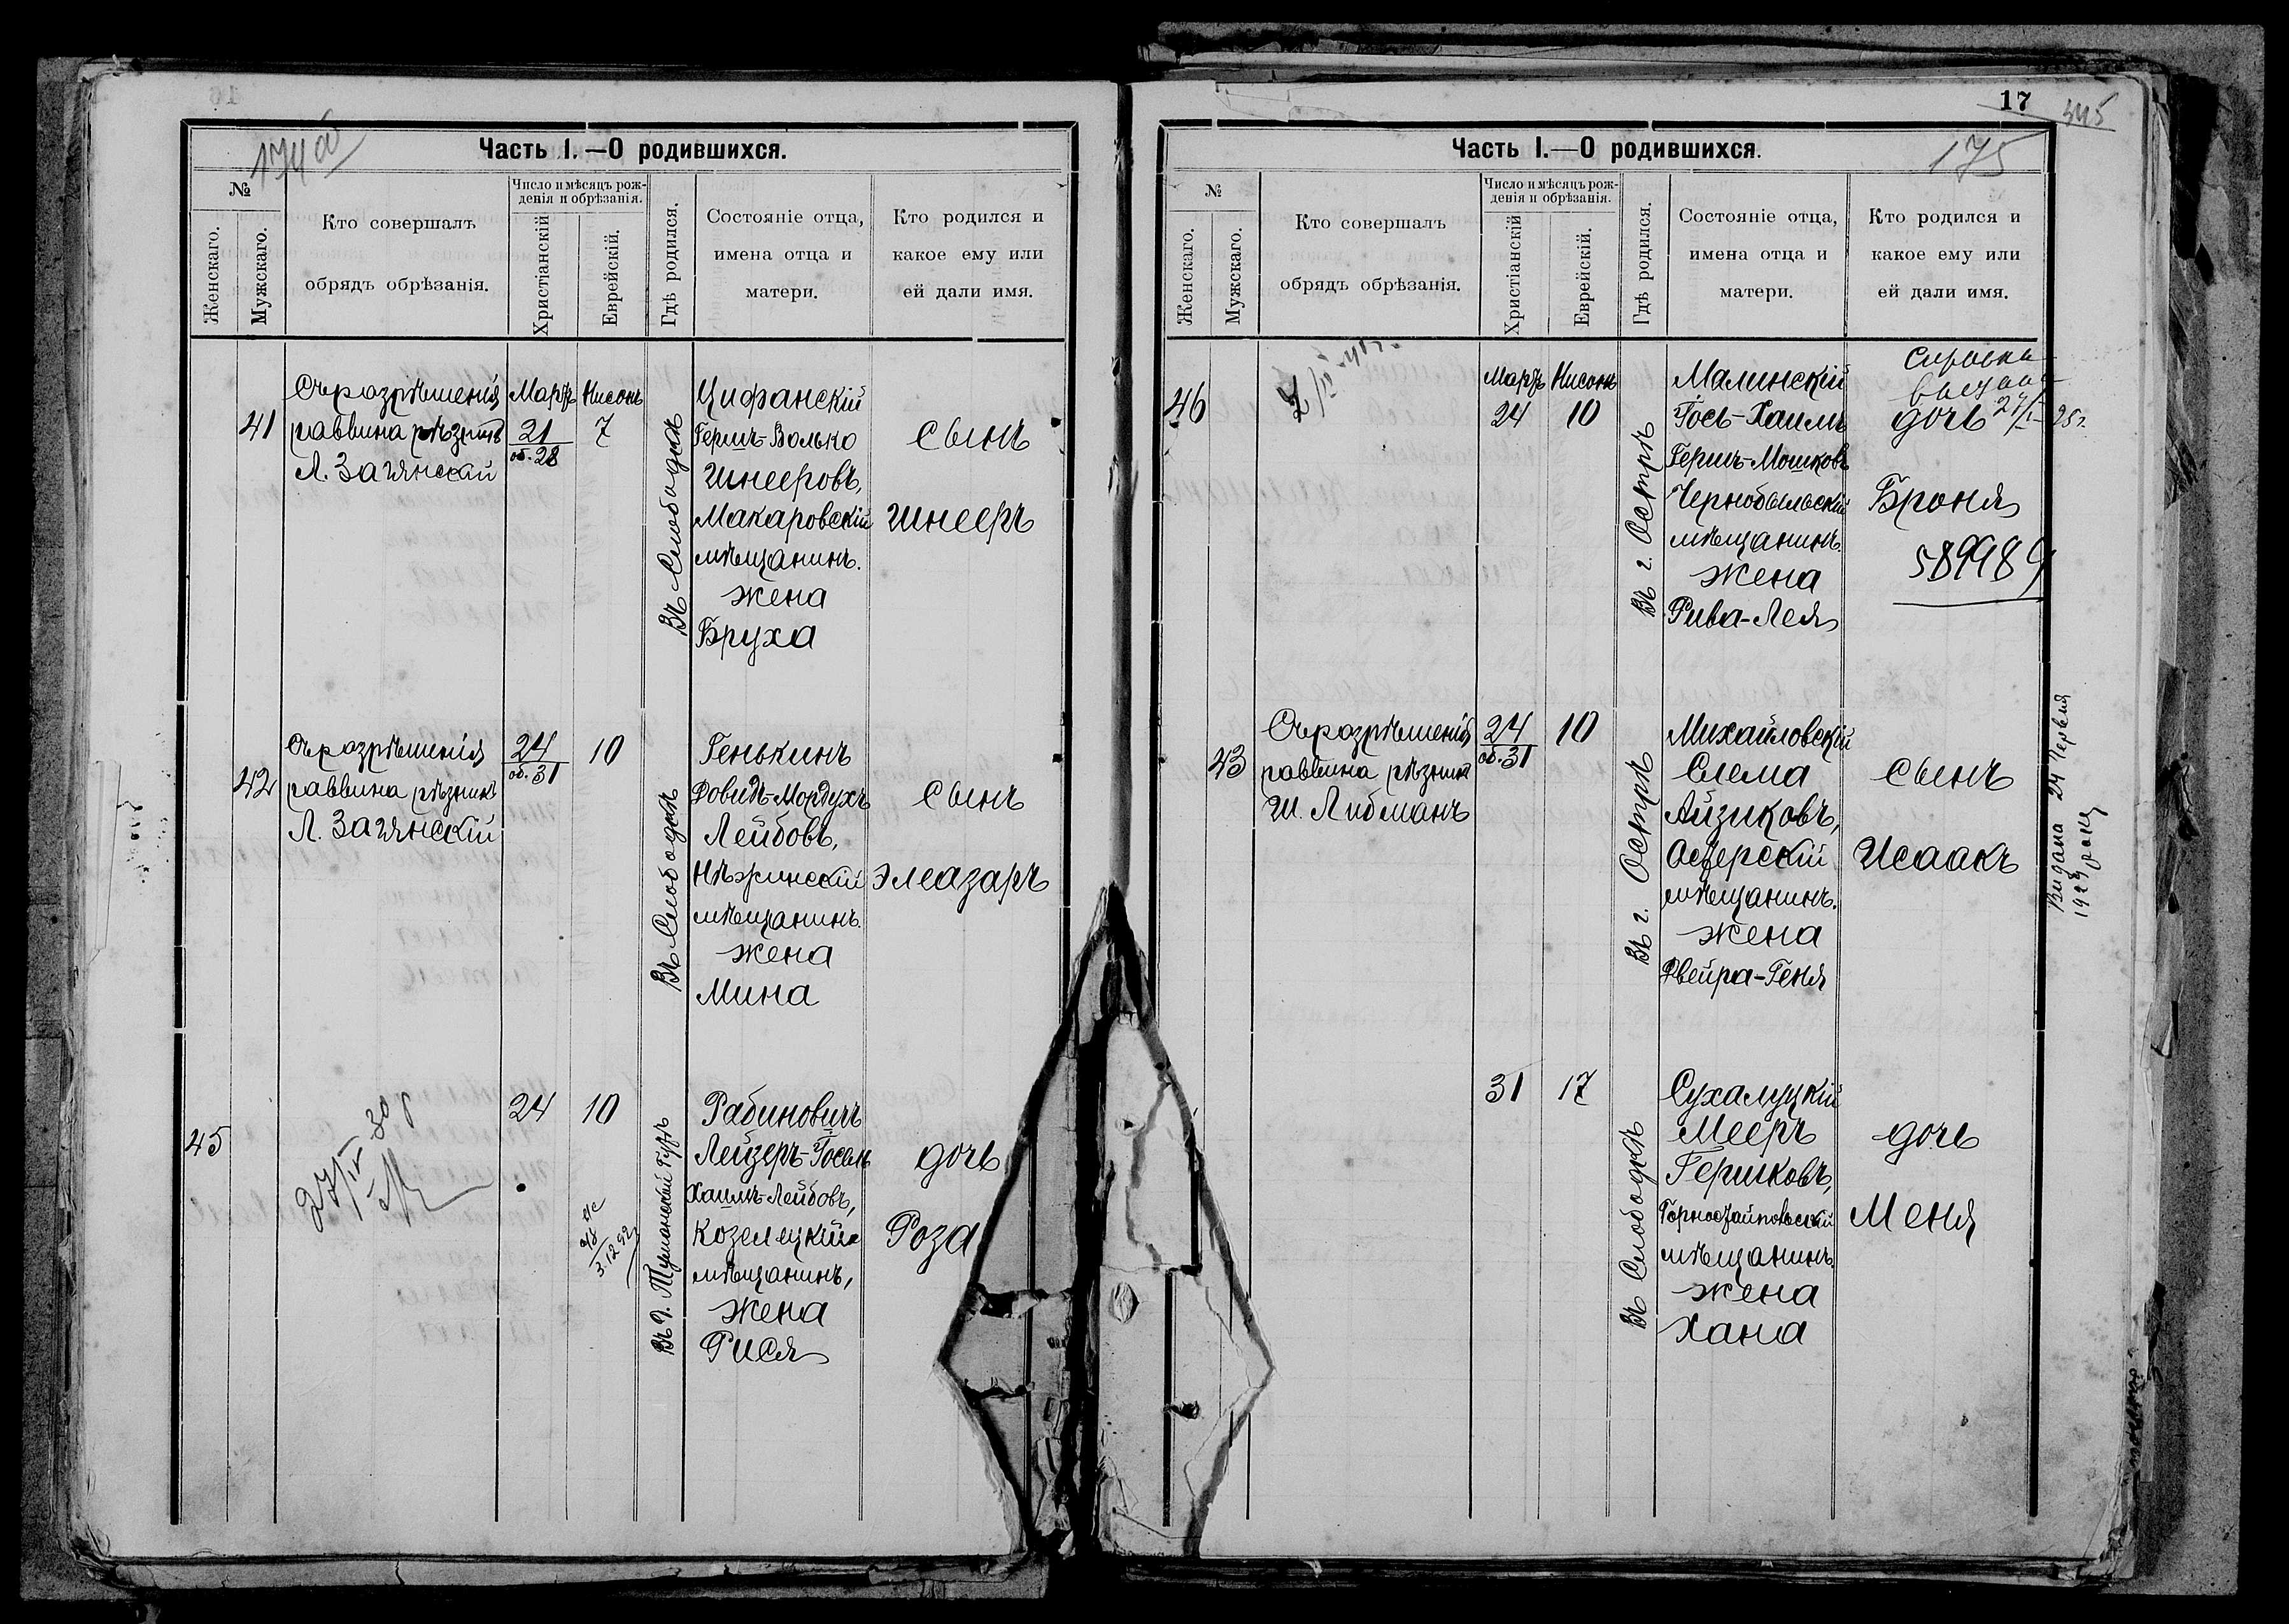 174 об
Часть I.—О родившихся.
№
Женскаго.
Мужскаго.
Кто совершалъ
обрядъ обрѣзанія.
Число и мѣсяцъ рож-
денія и обрѣзанія.
Христіанскій
Еврейскій.
Гдѣ родился.
Состояніе отца,
имена отца и
матери.
Кто родился и
какое ему или
ей дали имя.
41
Съ разрѣшенія
раввина рѣзникъ
Л. Загянскій
Мартъ
21
об. 28
Нисонъ
7
Въ Слободкѣ
Цифанскій
Гершъ-Волько
Шнееровъ,
Макаровскій
мѣщанинъ.
жена
Бруха
сынъ
Шнееръ
42
Съ разрѣшенія
раввина рѣзникъ
Л. Загянскій
24
об. 31
10
Въ Слободкѣ
Генькинъ
Довидъ-Мордухъ
Лейбовъ,
Нѣжинскій
мѣщанинъ.
жена
Мина
сынъ
Элеазаръ
45
27/IV-30
24
10
3.12.92
Рабиновичъ
Лейзеръ-Іосель
Хаимъ-Лейбовъ,
Козелецкій
мѣщанинъ,
жена
Рися
дочь
Роза
17
345
175
Часть I.—О родившихся.
№
Женскаго.
Мужскаго.
Кто совершалъ
обрядъ обрѣзанія.
Число и мѣсяцъ рож-
денія и обрѣзанія.
Христіанскій
Еврейскій.
Гдѣ родился.
Состояніе отца,
имена отца и
матери.
Кто родился и
какое ему или
ей дали имя.
46
Мартъ
24
Нисонъ
10
Въ г. Острѣ
Малинскій
Іось-Хаимъ
Гершъ-Мошковъ
Чернобыльскій
мѣщанинъ.
жена
Рива-Лея
Справка
выдана
дочь
Броня
589989
43
Съ разрѣшенія
раввина рѣзникъ
Ш. Либманъ
24
об. 31
10
Въ г. Острѣ
Михайловскій
Слема
Айзиковъ,
Остерскій
мѣщанинъ.
жена
Двейра-Геня
сынъ
Исаакъ
Видана 24 Червня
31
17
Въ Слободкѣ
Сухалуцкій
Мееръ
Гершковъ,
мѣщанинъ.
жена
Хана
дочь
Меня